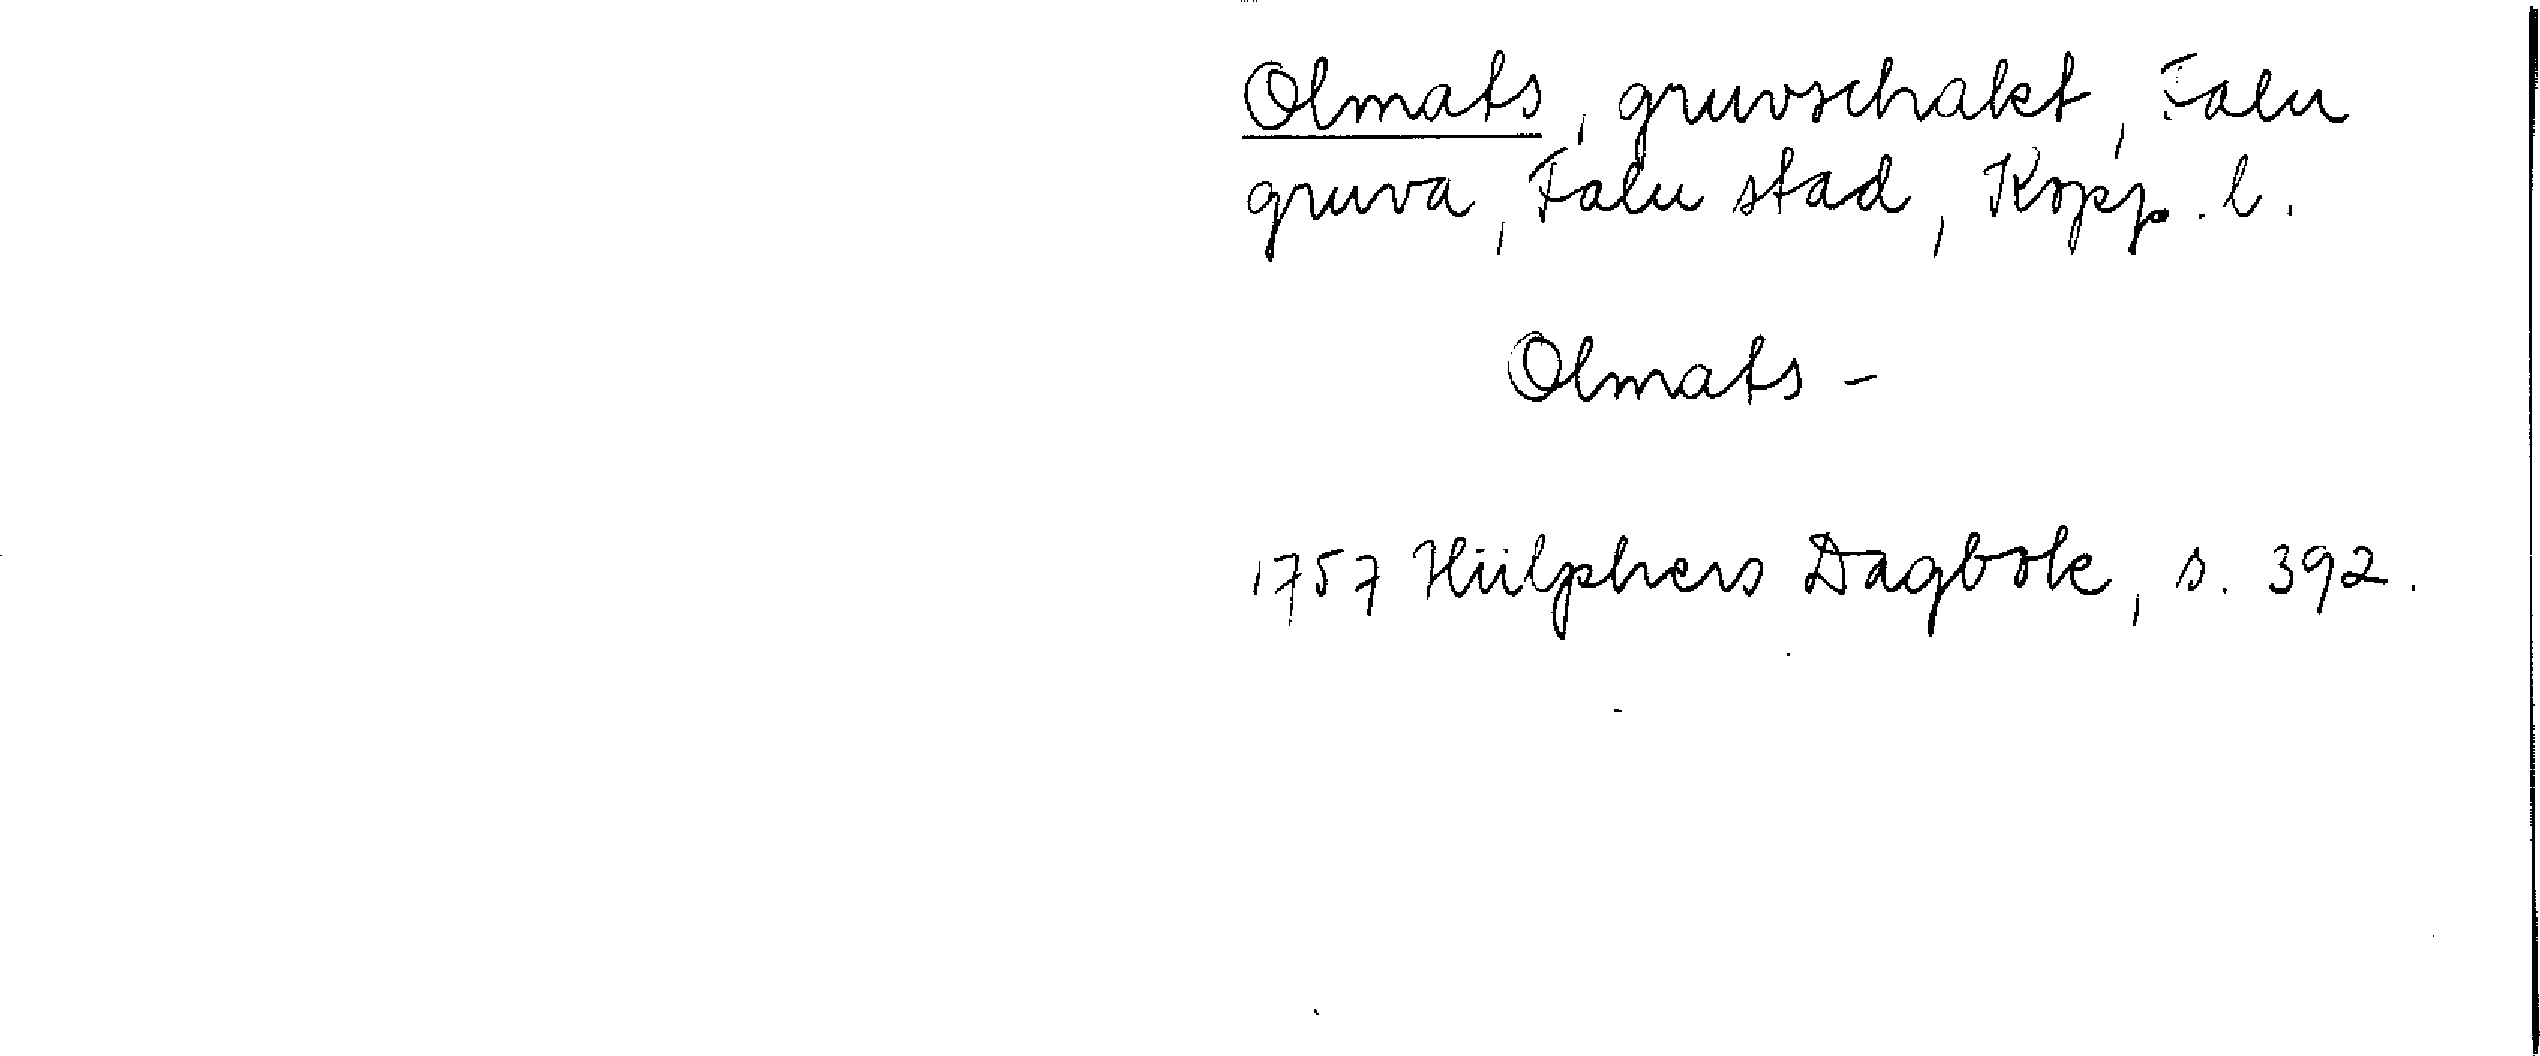 Olmats, gruvschakt, Falu
gruva, Falu stad, Kopp. l.
Olmats -
1757 Hülphers Dagbok, s. 392.